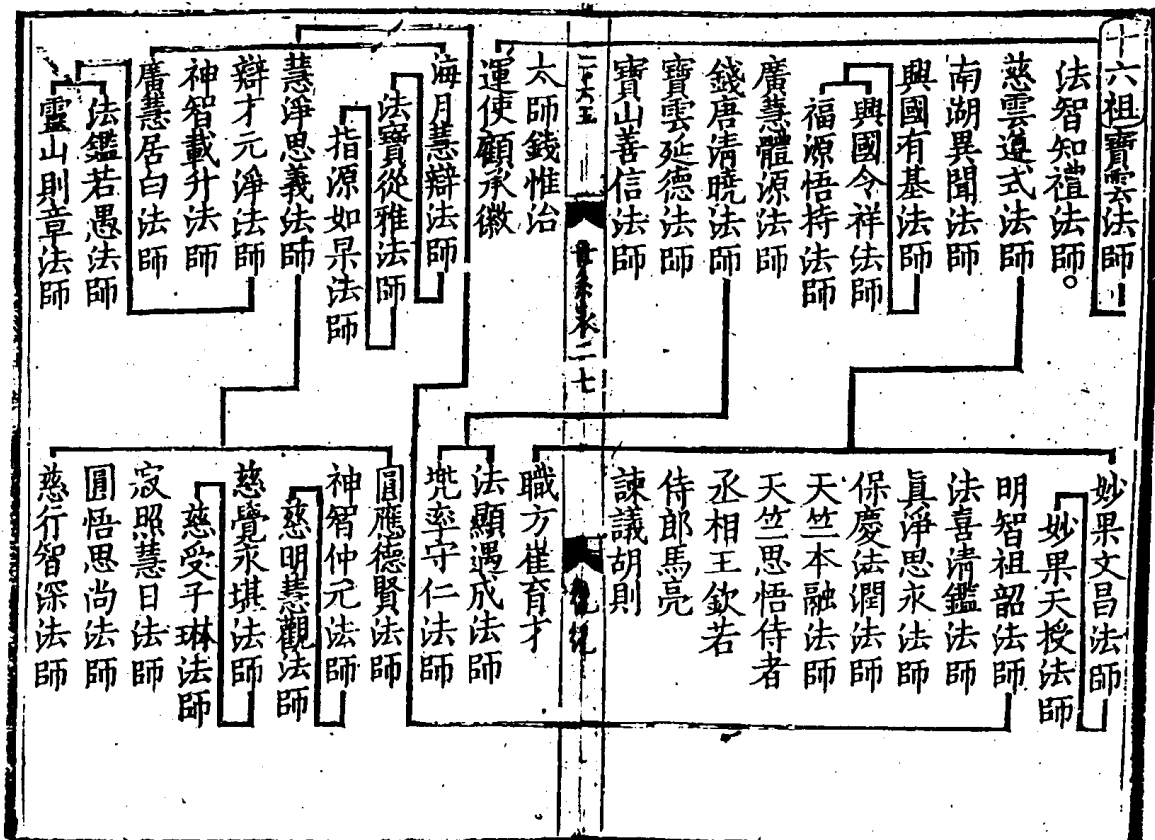 十六祖寶雲法師
法智知禮法師。
慈雲遵式法師
南湖異聞法師
興國有基法師
興國令祥法師
福源悟持法師
廣慧體源法師
錢唐清曉法師
寶雲延德法師
寶山善信法師
妙果文昌法師
妙果天授法師
明智祖韶法師
法喜清鑑法師
真淨思永法師
保慶法潤法師
天竺本融法師
天竺思悟侍者
丞相王欽若
侍郎馬亮
諫議胡則
職方崔育才
世系表二七
太師錢惟治
運使顧承徽
海月慧辯法師
法寶從雅法師
指源如杲法師
慧淨思義法師
辯才元淨法師
神智載升法師
廣慧居白法師
法鑑若愚法師
靈山則章法師
法顯遇成法師
兜率守仁法師
圓應德賢法師
神智仲元法師
慈明慧觀法師
慈覺永堪法師
慈受子琳法師
寂照慧日法師
圓悟思尚法師
慈行智深法師